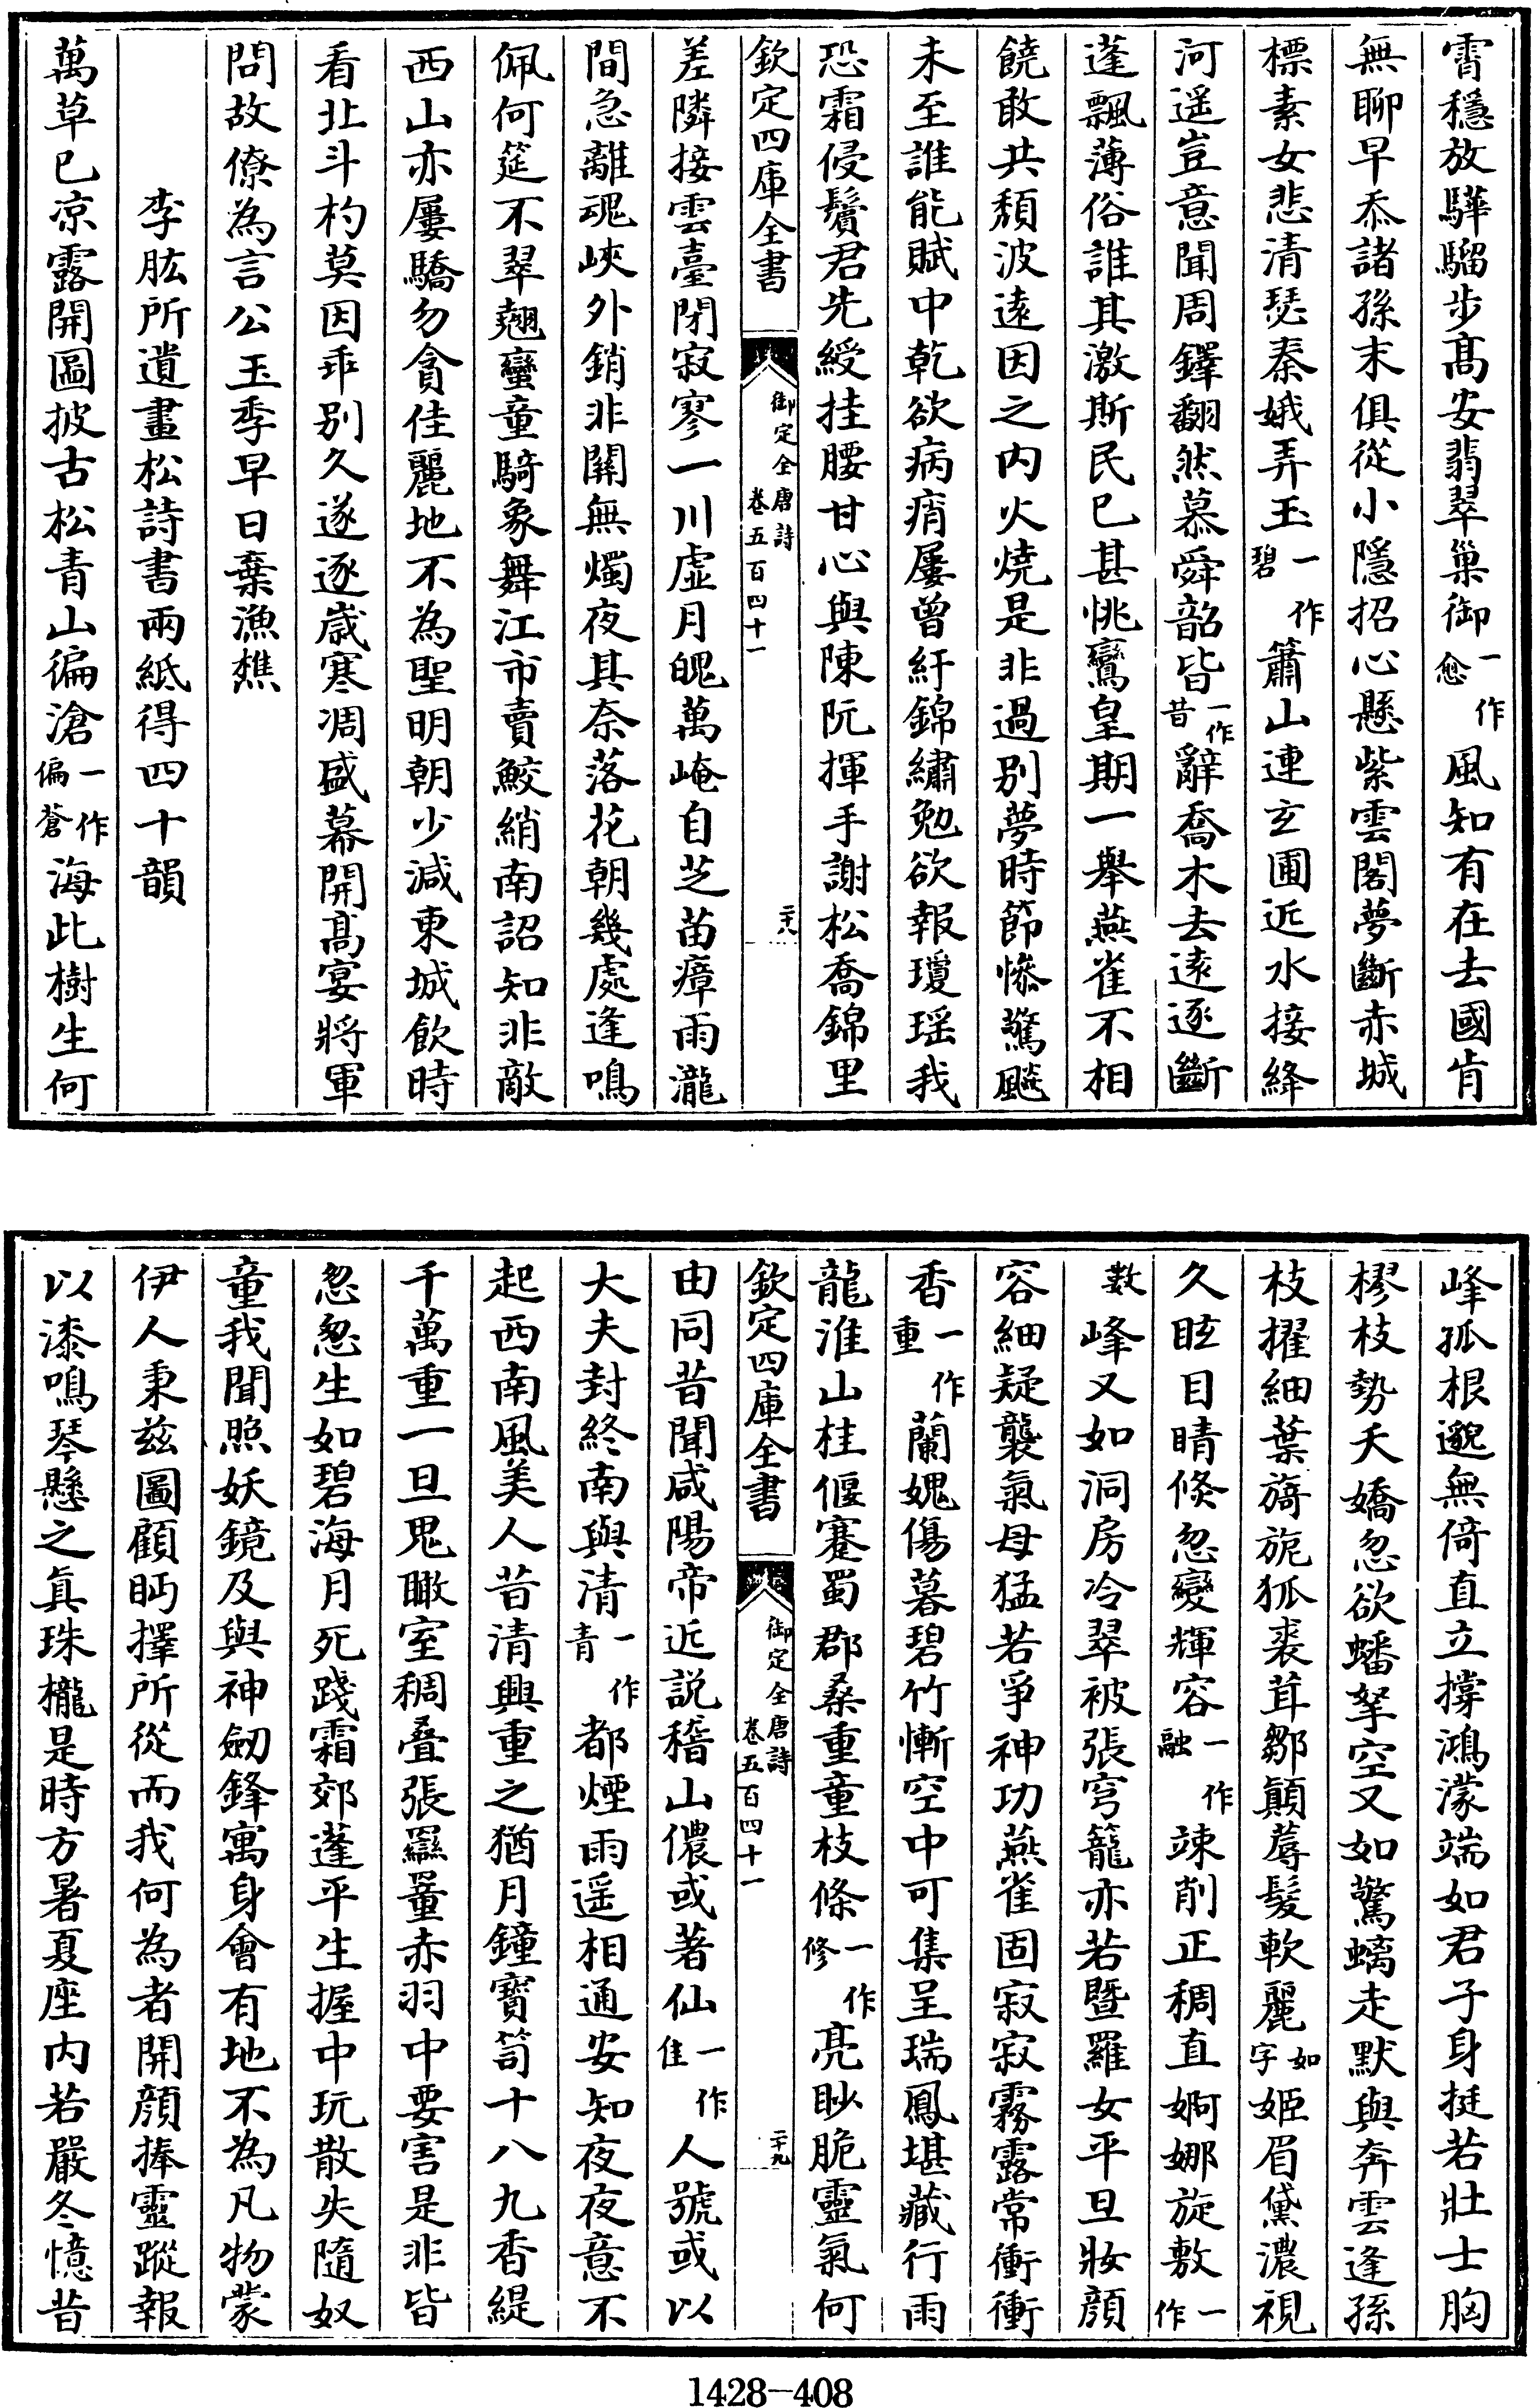 霄穩放驊騮步高安翡翠巢御一作愈風知有在去國肯
無聊早忝諸孫末俱從小隱招心懸紫雲閣夢斷赤城
標素女悲清瑟秦娥弄玉一作碧簫山連玄圃近水接絳
河遥豈意聞周鐸翻然慕舜韶皆一作昔辭喬木去遠逐斷
蓬飄薄俗誰其激斯民已甚恌鸞皇期一舉燕雀不相
饒敢共頽波遠因之内火燒是非過别夢時節慘驚飇
未至誰能賦中乾欲病痟屢曾紆錦繡勉欲報瓊瑶我
恐霜侵鬢君先綬挂腰甘心與陳阮揮手謝松喬錦里
欽定四庫全書 御定全唐詩 卷五百四十一 二十八
差隣接雲臺閉寂寥一川虛月魄萬崦自芝苗瘴雨瀧
間急離魂峽外銷非關無燭夜其奈落花朝幾處逢鳴
佩何筵不翠翹蠻童騎象舞江市賣鮫綃南詔知非敵
西山亦屢驕勿貪佳麗地不為聖明朝少減東城飲時
看北斗杓莫因乖别久遂逐嵗寒凋盛幕開高宴將軍
問故僚為言公玉季早日棄漁樵
李肱所遺畫松詩書兩紙得四十韻
萬草已凉露開圖披古松青山徧滄一作偏蒼海此樹生何
峰孤根邈無倚直立撐鴻濛端如君子身挺若壯士胸
樛枝勢夭嬌忽欲蟠拏空又如驚螭走默與奔雲逢孫
枝擢細葉旖旎狐裘茸鄒顛蓐髮軟麗如字姬眉黛濃視
久眩目睛倐忽變輝容一作融竦削正稠直婀娜旋敷一作
數峰又如洞房冷翠被張穹籠亦若暨羅女平旦妝顔
容細疑襲氣母猛若爭神功燕雀固寂寂霧露常衝衝
香一作重蘭媿傷暮碧竹慚空中可集呈瑞鳳堪藏行雨
龍淮山桂偃蹇蜀郡桑重童枝條一作修亮眇脆靈氣何
欽定四庫全書 御定全唐詩 卷五百四十一 二十九
由同昔聞咸陽帝近説稽山儂或著仙一作佳人號或以
大夫封終南與清一作青都煙雨遥相通安知夜夜意不
起西南風美人昔清興重之猶月鐘寳笥十八九香緹
千萬重一旦鬼瞰室稠疊張羉罿赤羽中要害是非皆
怱怱生如碧海月死踐霜郊蓬平生握中玩散失隨奴
童我聞照妖鏡及與神劒鋒寓身會有地不為凡物蒙
伊人秉兹圖顧眄擇所從而我何為者開顔捧靈蹤報
以漆鳴琴懸之真珠櫳是時方暑夏座内若嚴冬憶昔
1428-408